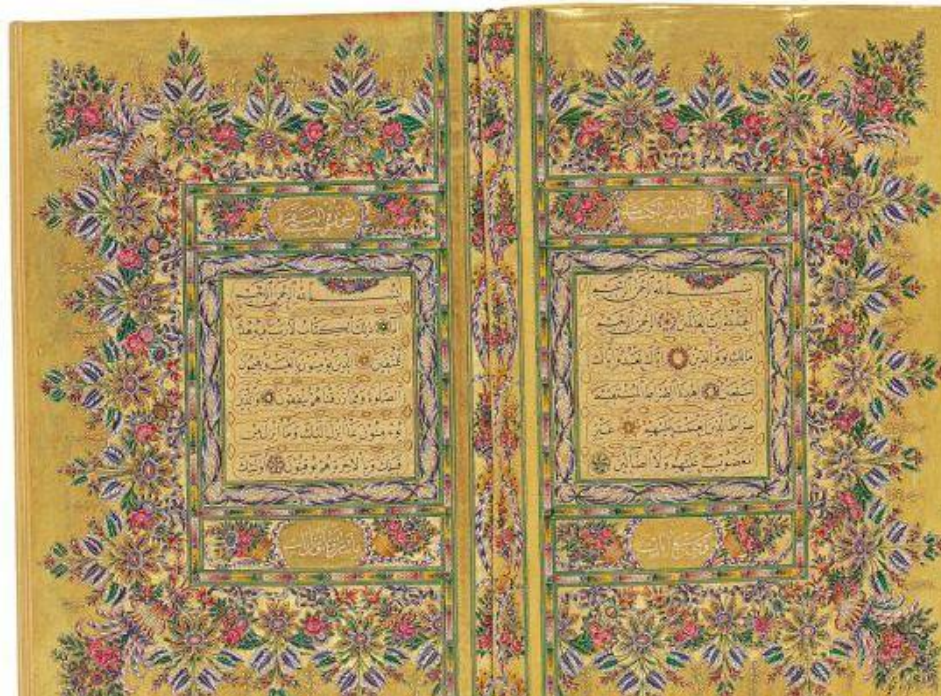 سورة فاتحة الكتاب
بسم الله الرحمن الرحيم
الحمد لله رب العالمين الرحمن الرحيم
مالك يوم الدين اياك نعبد واياك
نستعين اهدنا الصراط المستقيم
صراط الذين انعمت عليهم غير
المغضوب عليهم ولا الضالين
وهي سبع ايات
سورة البقرة
بسم الله الرحمن الرحيم
الم ذلك الكتاب لا ريب فيه هدى
للمتقين الذين يؤمنون بالغيب ويقيمون
الصلوة ومما رزقناهم ينفقون والذين
يؤمنون بما انزل اليك وما انزل من
قبلك وبالاخرة هم يوقنون اولئك